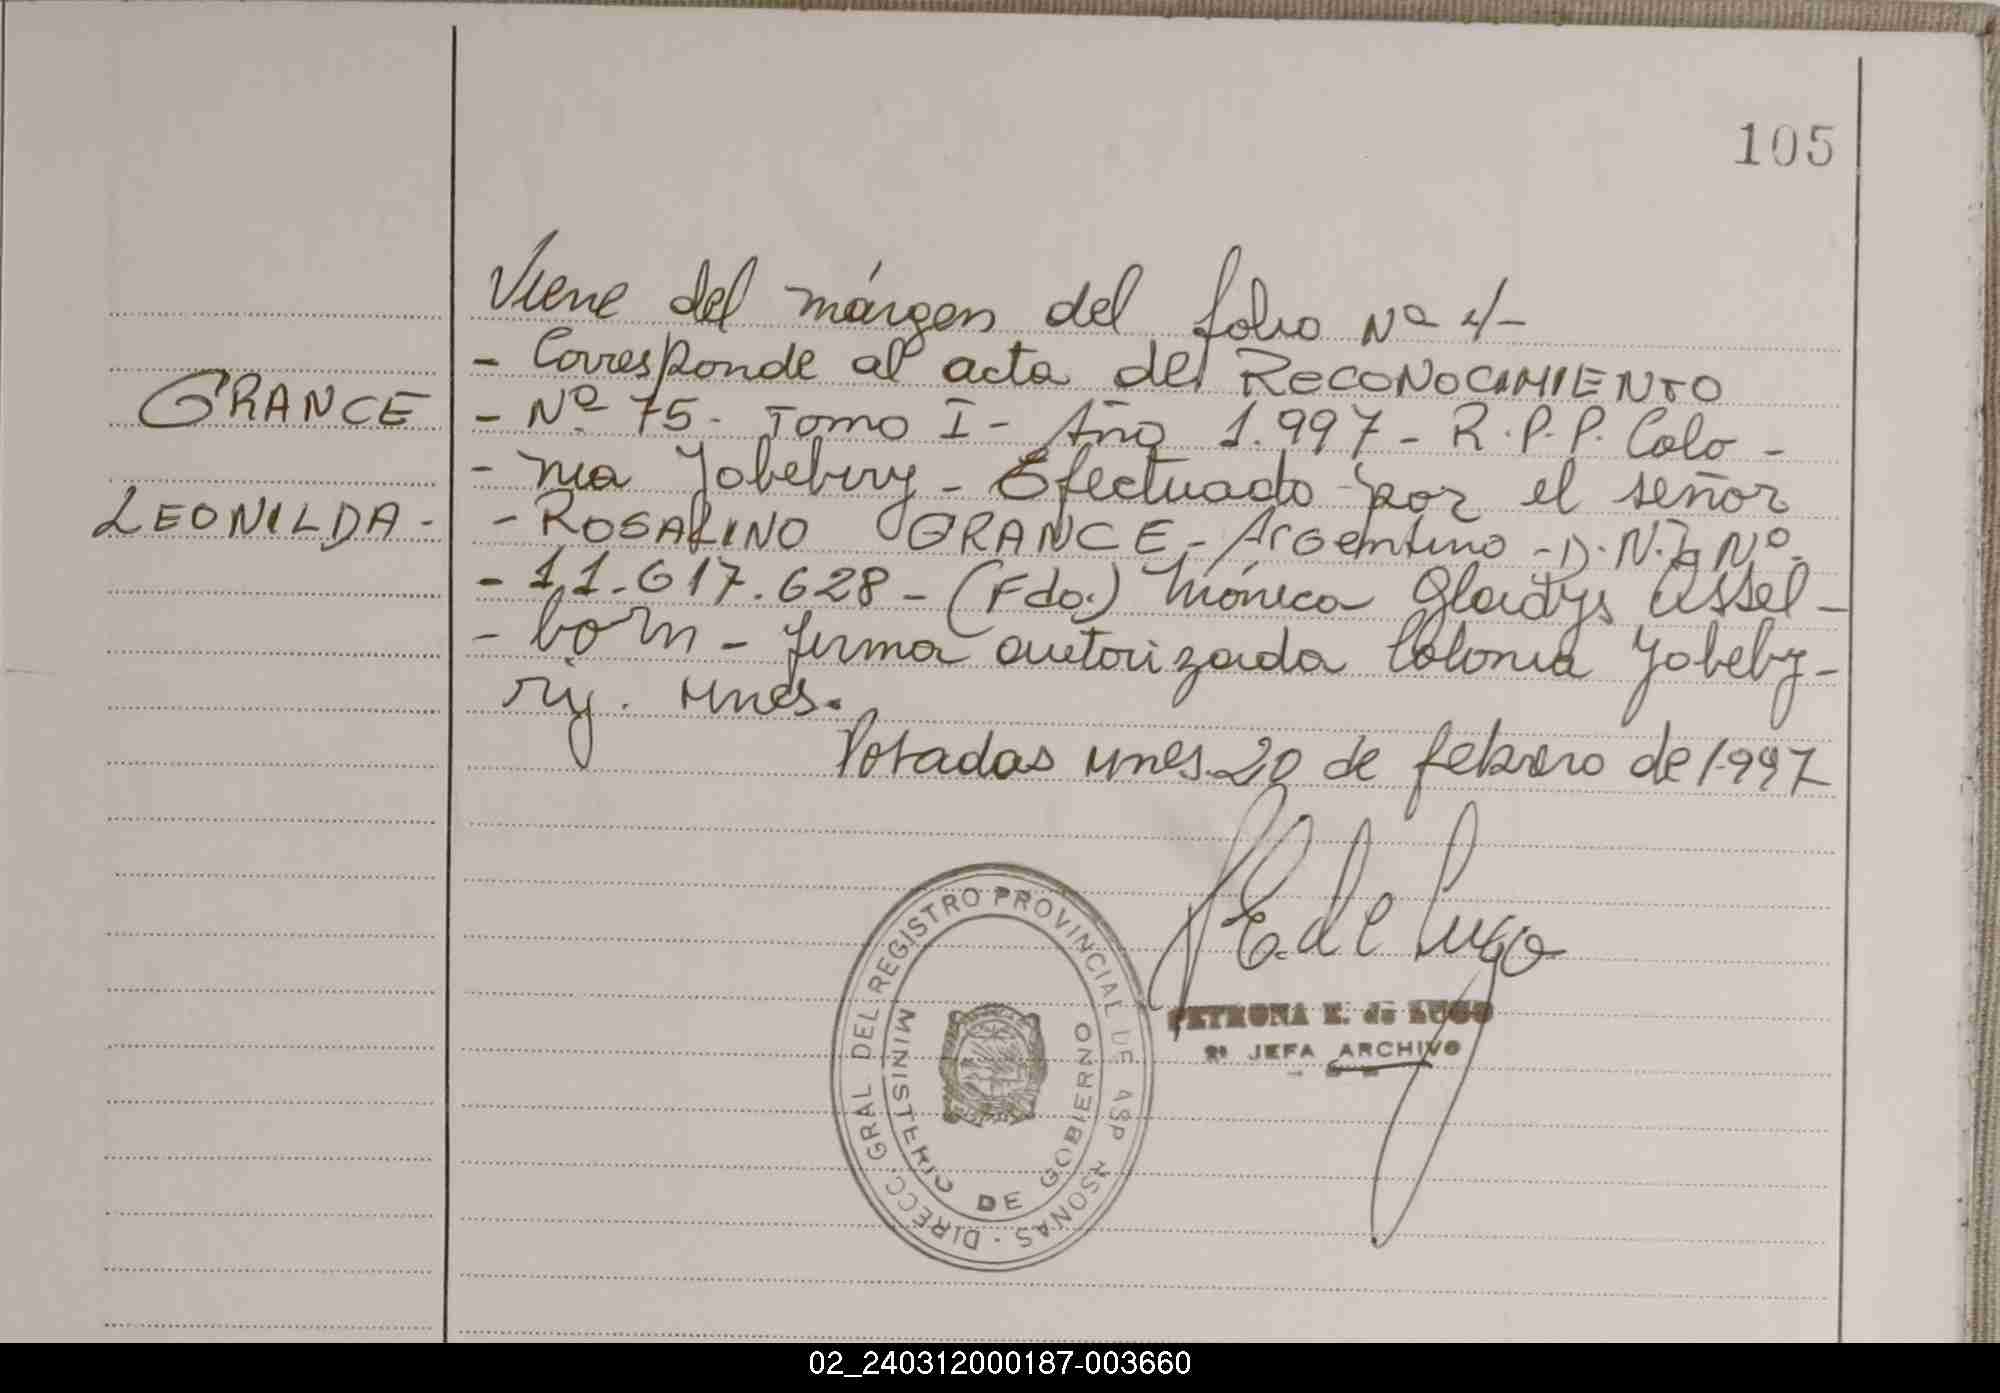 105
Viene del márgen del folio Nº 4/-
- Corresponde al acta de RECONOCIMIENTO
GRANCE
- Nº 75- Tomo I - Año 1.997 - R.P.P. Colo -
- nia Yabebiry - Efectuado por el señor
LEONILDA -
- ROSALINO GRANCE - Argentino - D.N.I. Nº-
- 11.617.628 - (Fdo.) Mónica Gladys Assel -
- born - firma autorizada Colonia Yabeby-
ry. Mnes.
Posadas Mnes. 20 de febrero de 1.997
E. de Lugo
PETRONA E. de LUGO
2ª JEFA ARCHIVO
DIRECC. GRAL DEL REGISTRO PROVINCIAL DE ASP RSONAS
MINISTERIO DE GOBIERNO
02_240312000187-003660